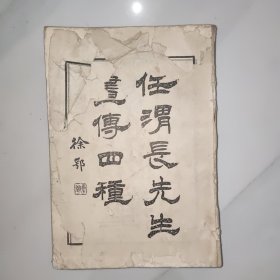 任渭長先生
畫傳四種
徐郙